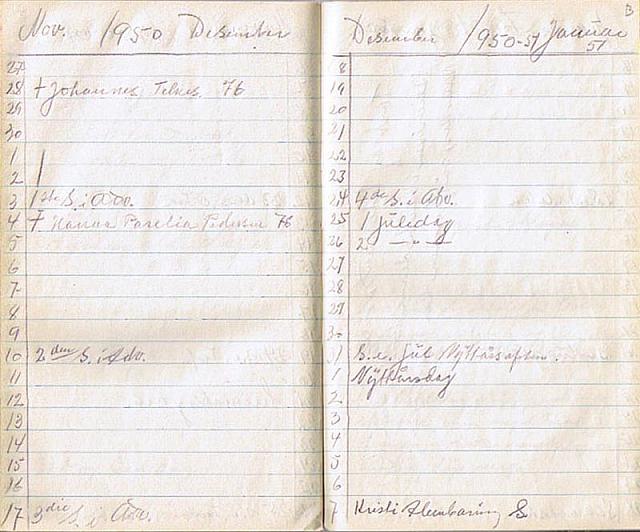 Nov. 1950 Desember
27
28 + Johannes Telnes. 76
29
30
1
2
3 1ste S. i Adv.
4 + Hanna Pedersen 76
5
6
7
8
9
10 2den S. i Adv.
11
12
13
14
15
16
17 3die S. i Adv.
Desember 1950-51 Januar 51
8
19
20
21
22
23
24 4de S. i Adv.
25 1 juledag
26 2 — " —
27
28
29
30
31 S. e. jul Nyttårsaften.
1 Nyttårsdag
2
3
4
5
6
7 Kristi Åbenbaring S